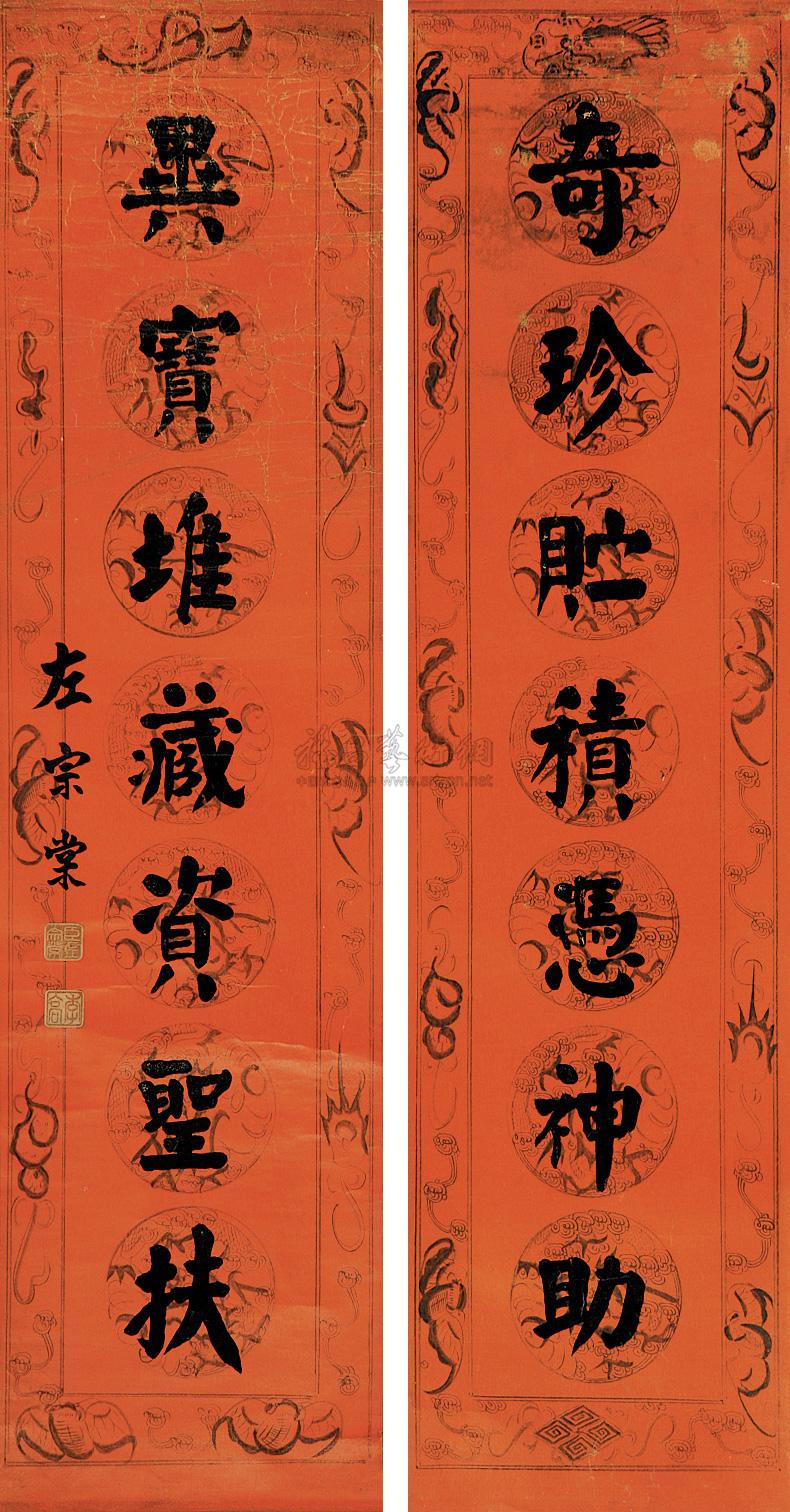 奇珍貯積憑神助
異寶堆藏資聖扶
左宗棠
www.artron.net